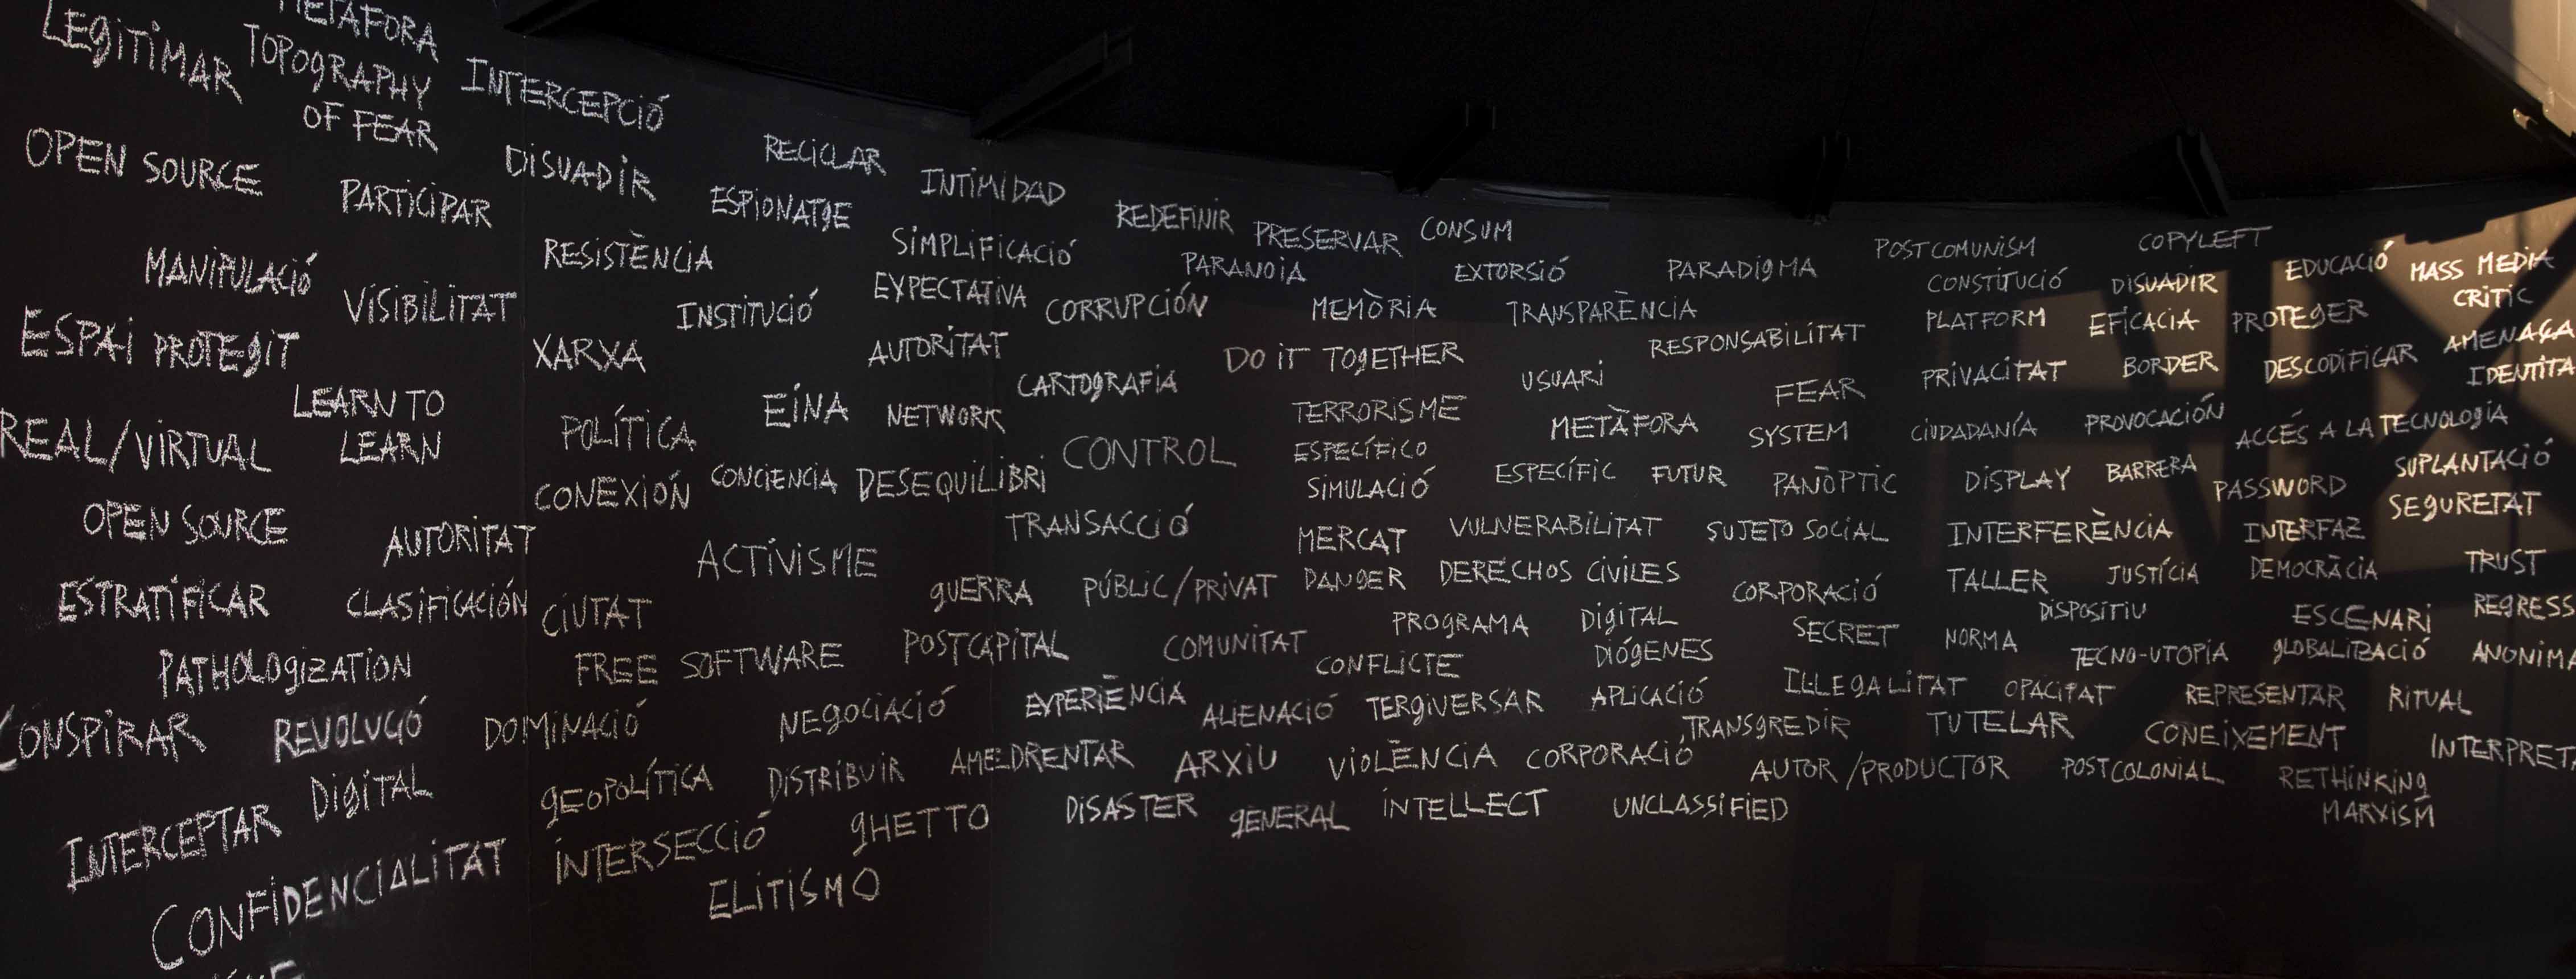 METAFORA
LEGITIMAR
TOPOGRAPHY
OF FEAR
INTERCEPCIÓ
OPEN SOURCE
PARTICIPAR
DISUADIR
RECICLAR
ESPIONATGE
INTIMIDAD
MANIPULACIÓ
VISIBILITAT
RESISTÈNCIA
SIMPLIFICACIÓ
REDEFINIR
PRESERVAR
CONSUM
ESPAI PROTEGIT
XARXA
INSTITUCIÓ
EXPECTATIVA
CORRUPCIÓN
PARANOIA
EXTORSIÓ
PARADIGMA
POSTCOMUNISM
COPYLEFT
MEMÒRIA
TRANSPARÈNCIA
CONSTITUCIÓ
DISUADIR
EDUCACIÓ
MASS MEDIA
CRITIC
AUTORITAT
DO IT TOGETHER
RESPONSABILITAT
PLATFORM
EFICACIA
PROTEGER
AMENAÇA
LEARN TO
LEARN
REAL/VIRTUAL
POLÍTICA
EINA
NETWORK
CARTOGRAFIA
USUARI
FEAR
PRIVACITAT
BORDER
DESCODIFICAR
TERRORISME
METÀFORA
SYSTEM
CIUDADANÍA
PROVOCACIÓN
ACCÉS A LA TECNOLOGIA
CONEXIÓN
CONCIENCIA
DESEQUILIBRI
CONTROL
ESPECÍFICO
SIMULACIÓ
ESPECÍFIC
FUTUR
PANÒPTIC
DISPLAY
BARRERA
PASSWORD
SUPLANTACIÓ
SEGURETAT
OPEN SOURCE
AUTORITAT
ACTIVISME
TRANSACCIÓ
MERCAT
VULNERABILITAT
SUJETO SOCIAL
INTERFERÈNCIA
INTERFAZ
ESTRATIFICAR
CLASIFICACIÓN
CIUTAT
GUERRA
PÚBLIC/PRIVAT
DANGER
DERECHOS CIVILES
CORPORACIÓ
TALLER
JUSTÍCIA
DEMOCRÀCIA
TRUST
DISPOSITIU
PATHOLOGIZATION
FREE SOFTWARE
POSTCAPITAL
COMUNITAT
PROGRAMA
DIGITAL
DIÓGENES
SECRET
NORMA
ESCENARI
REGRESS
CONFLICTE
TECNO-UTOPIA
GLOBALITZACIÓ
ANONIMA
CONSPIRAR
REVOLUCIÓ
DOMINACIÓ
NEGOCIACIÓ
EXPERIÈNCIA
ALIENACIÓ
TERGIVERSAR
APLICACIÓ
ILLEGALITAT
OPACITAT
REPRESENTAR
RITUAL
TRANSGREDIR
TUTELAR
CONEIXEMENT
INTERPRETA
INTERCEPTAR
DIGITAL
GEOPOLÍTICA
DISTRIBUIR
AMEDRENTAR
ARXIU
VIOLÈNCIA
CORPORACIÓ
AUTOR/PRODUCTOR
POSTCOLONIAL
RETHINKING
MARXISM
CONFIDENCIALITAT
INTERSECCIÓ
GHETTO
DISASTER
GENERAL
INTELLECT
UNCLASSIFIED
ELITISMO